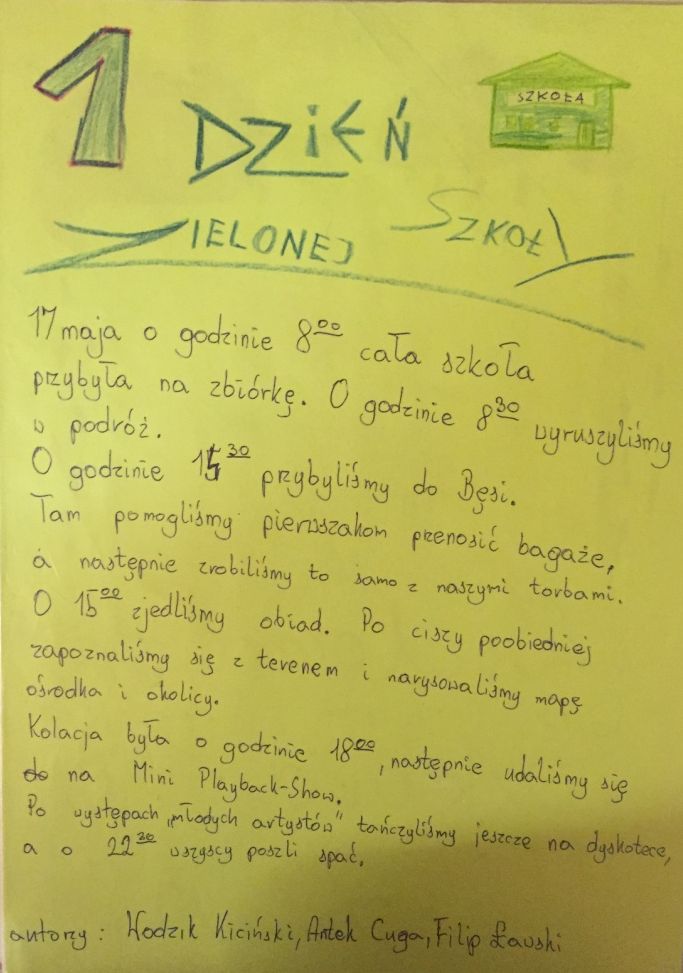 1 DZIEŃ
SZKOŁA
ZIELONEJ SZKOŁY
17 maja o godzinie 8⁰⁰ cała szkoła
przybyła na zbiórkę. O godzinie 8³⁰ wyruszyliśmy
w podróż.
O godzinie ³⁰ przybyliśmy do Bęsi.
Tam pomogliśmy pierwszakom przenosić bagaże,
a następnie zrobiliśmy to samo z naszymi torbami.
O 15⁰⁰ zjedliśmy obiad. Po ciszy poobiedniej
zapoznaliśmy się z terenem i narysowaliśmy mapę
ośrodka i okolicy.
Kolacja była o godzinie 18⁰⁰, następnie udaliśmy się
do na Mini Playback-Show.
Po występach „młodych artystów" tańczyliśmy jeszcze na dyskotece,
a o 22³⁰ wszyscy poszli spać.
autorzy: Wodzik Kiciński, Antek Cuga, Filip Ławski